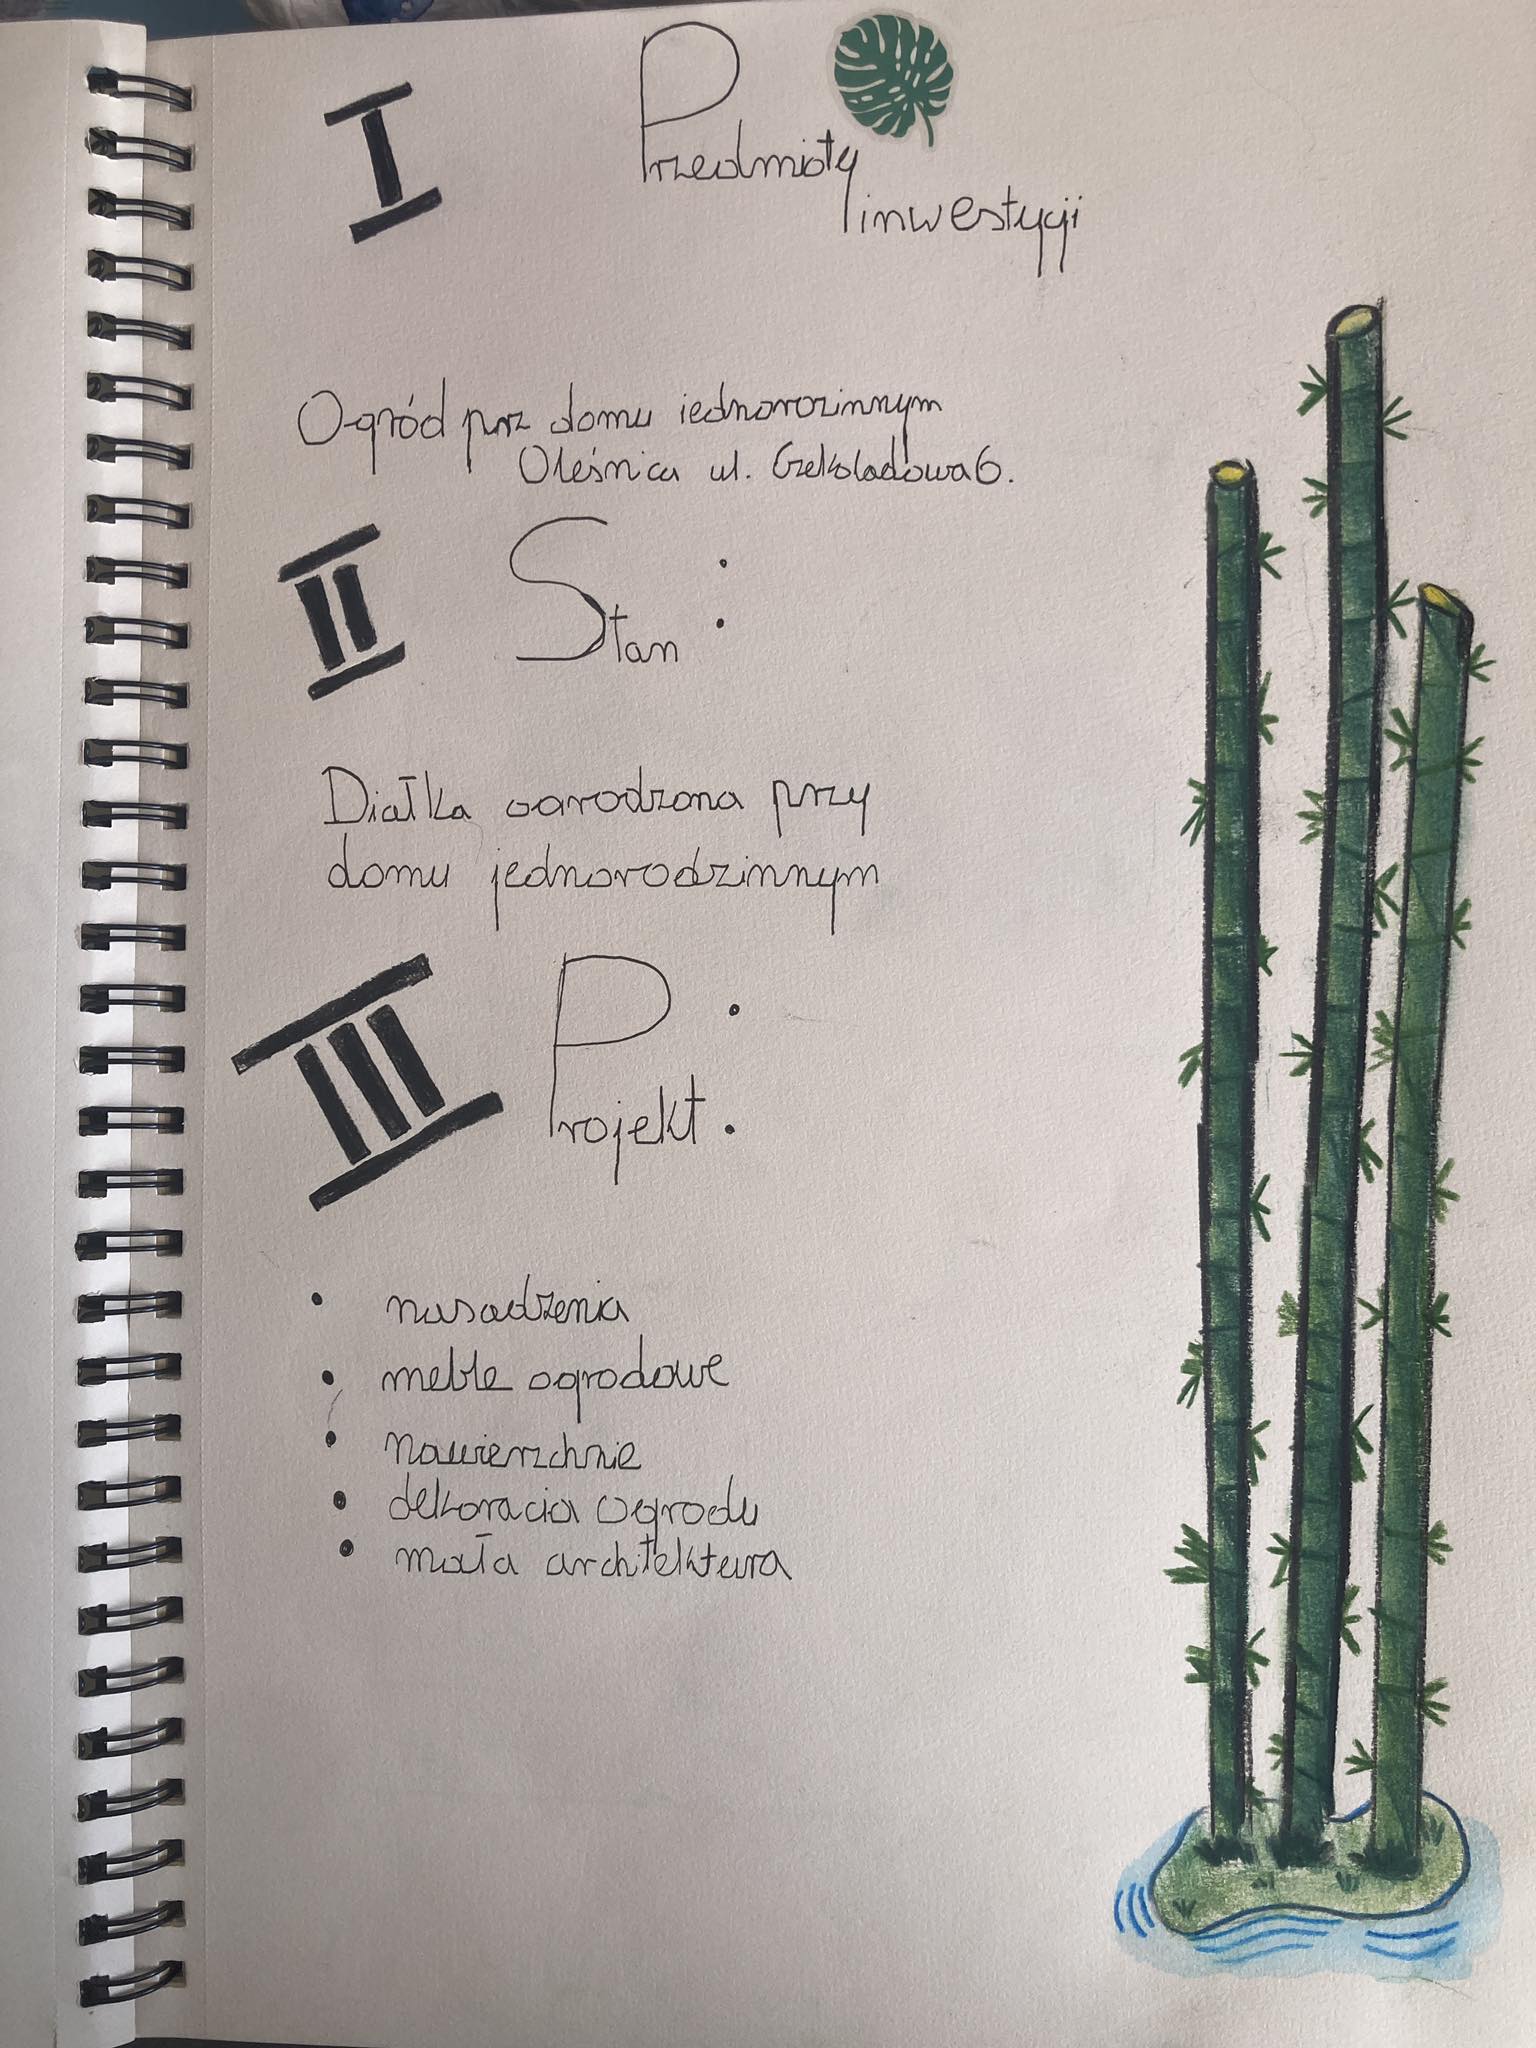 I
Przedmioty
inwestycji
Ogród prz domu jednorozinnym
Oleśnica ul. Czekoladowa 6.
II
Stan :
Diałka ogrodzona przy
domu jednorodzinnym
III
Projekt :
• nasadzenia
• meble ogrodowe
• nawierzchnie
• dekoracia ogrodu
• mała architektura